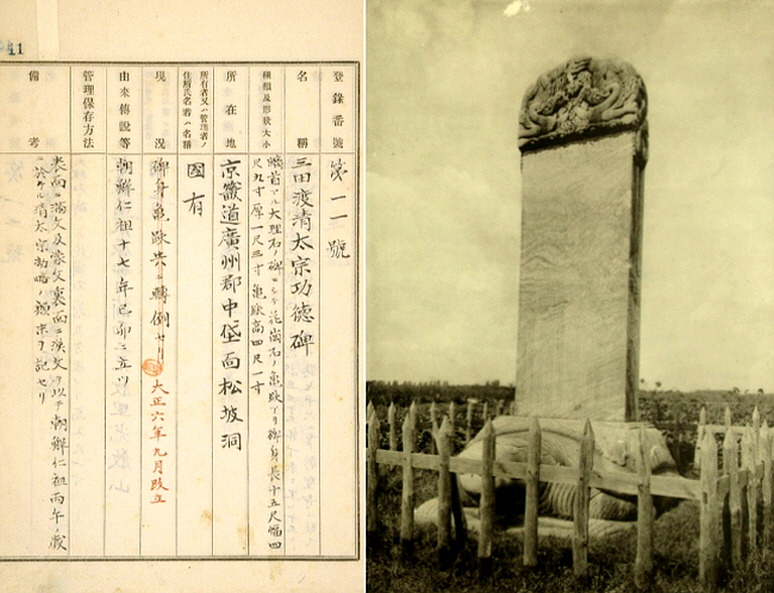 11
登錄番號
第一一號
名稱
三田渡清太宗功德碑
種類及形狀大小
螭首アル大理石ノ碑ニシテ花崗石ノ龜趺アリ碑身長十五尺幅四
尺九寸厚一尺三寸龜趺高四尺一寸
所在地
京畿道廣州郡中垈面松坡洞
所有者又ハ管理者ノ
住所氏名若ハ名稱
國有
現況
碑身龜趺共ニ轉倒セリ 大正六年九月改立
由來傳說等
朝鮮仁祖十七年己卯ニ立ツ
管理保存方法
備考
表面ニ滿文及蒙文裏面ニ漢文ヲ以テ朝鮮仁祖丙午ノ歲
ニ於ケル清太宗ノ顛末ヲ記セリ